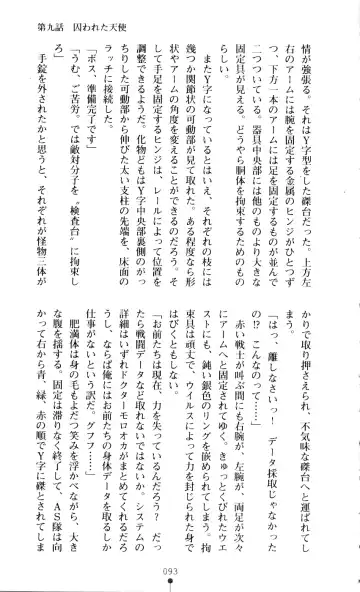 第九話　囚われた天使
情が強張る。それは、Ｙ字型をした磔台だった。上方左
右のアームには腕を固定する金属のヒンジがひとつず
つ、下方一本のアームには足を固定するものが並んで
二つついている。器具中央部には他のものより大きな
固定具が見える。どうやら胴体を拘束するためのもの
か。
　またＹ字になっているとはいえ、それぞれの枝には
幾つか関節状の可動部が見て取れた。ある程度なら形
状やアームの角度を変えることができるのだろう。そ
して手足を固定するヒンジは、レールによって位置を
調整できるようだ。化物どもはＹ字中央部裏側のがっ
ちりした可動部から伸びた太い支柱の先端を、床面の
ラッチに接続した。
「ボス、準備完了です」
「うむ、ご苦労。では敵対分子を〝検査台〟に拘束し
ろ」
　手錠を外されたかと思うと、それぞれが怪物三体が
かりで取り押さえられ、不気味な磔台へと運ばれてし
まう。
「はっ、離しなさいっ！　データ採取じゃないっ
の!?　こんなのって……」
　赤い戦士が叫ぶ間にも右腕、左腕、両足が次々
にアームへと固定されてゆく。きゅっとくびれたウエ
ストにも、鈍い銀色のリングを嵌められてしまう。拘
束具は頑丈で、ウイルスによって力を封じられた身で
はびくともしない。
「お前たちは現在、力を失っているんだろう？　だっ
たら戦闘データなど取れないではないか。システムの
詳細はいずれドクターモロオカがまとめてくれるだろ
うし、ならば俺にはお前たちの身体データを取るしか
仕事がないという訳だ。グフフ……」
　肥満体は身の毛もよだつ笑みを浮かべながら、大き
な腹を揺する。固定は滞りなく終了して、ＡＳ隊は向
かって右から青、緑、赤の順でＹ字に磔とされてしま
093